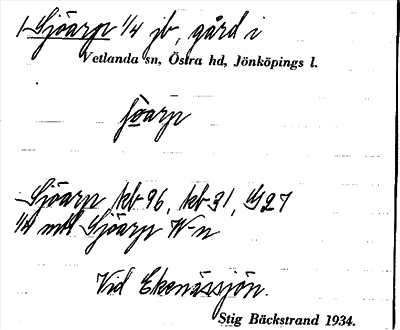 1 Sjöarp 1/4 jb, gård i
Vetlanda sn, Östra hd, Jönköpings l.
ʃöarp
Sjöarp kb 96, kb 31, G27
1/4 mtl Sjöarp N-n
Vid Ekenässjön.
Stig Bäckstrand 1934.